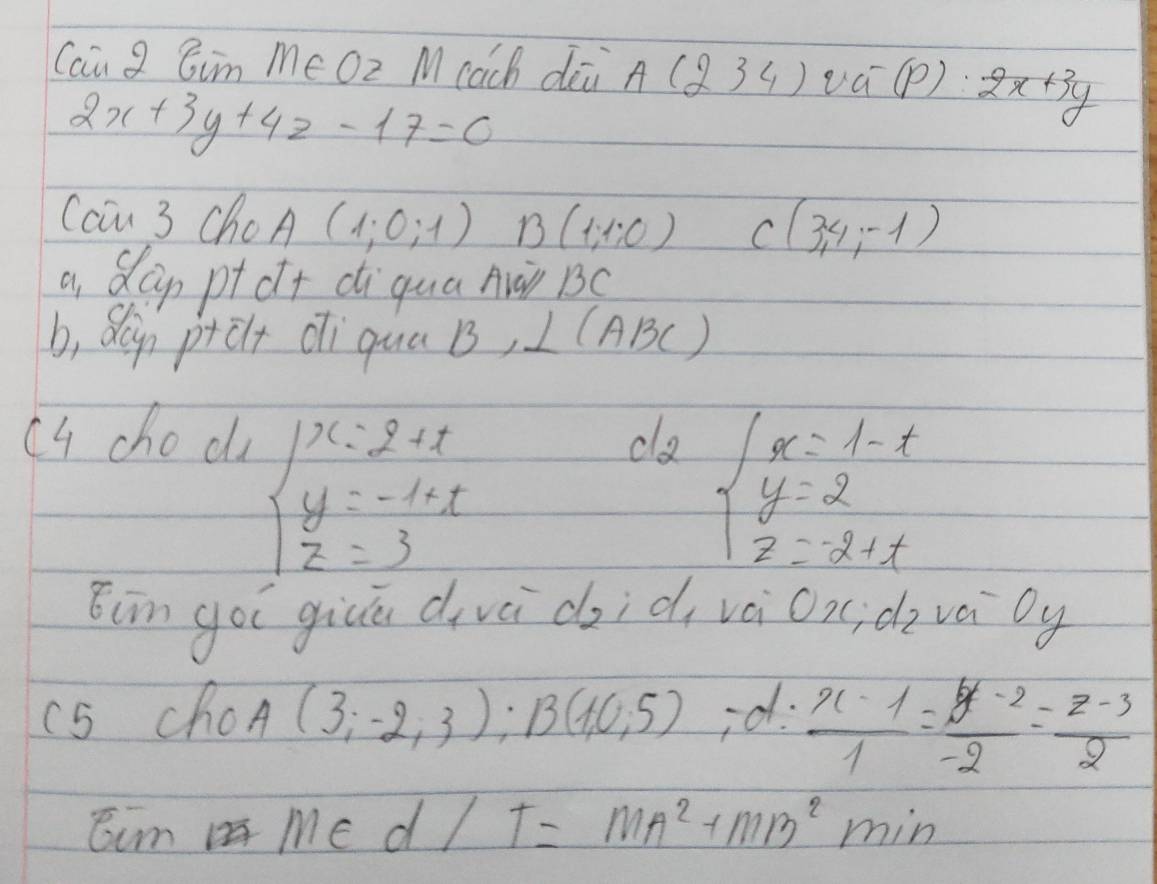 Câu 2 Tìm M∈Oz M cách đều A (2 3 4) và (P): 2x+3y
2x+3y+4z-17=0
Câu 3 Cho A (1;0;1) B(1;1;0) C(3;4;-1)
a, Lập pt đt đi qua A và // BC
b, Lập pt đt đi qua B, ⊥ (ABC)
C4 cho d₁ { x=2+t d₂ { x=1-t
y=-1+t y=2
z=3 z=-2+t
Tìm góc giữa d₁ và d₂; d₁ và Ox; d₂ và Oy
C5 Cho A (3;-2;3); B(1;0;5); d: (x-1)/1 = (y-2)/-2 = (z-3)/2
Tìm M∈ d / T= MA²+MB² min